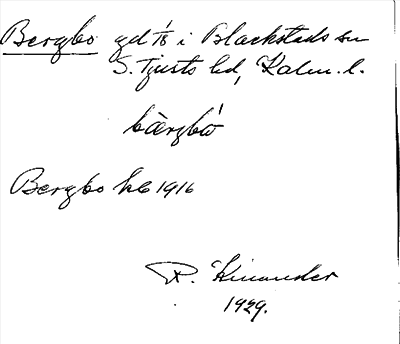 Bergbo gd 1/8 i Blackstads sn
S. Tjusts hd, Kalm. l.
bàrgbò
Bergbo hb 1916
R. Kinander
1929.